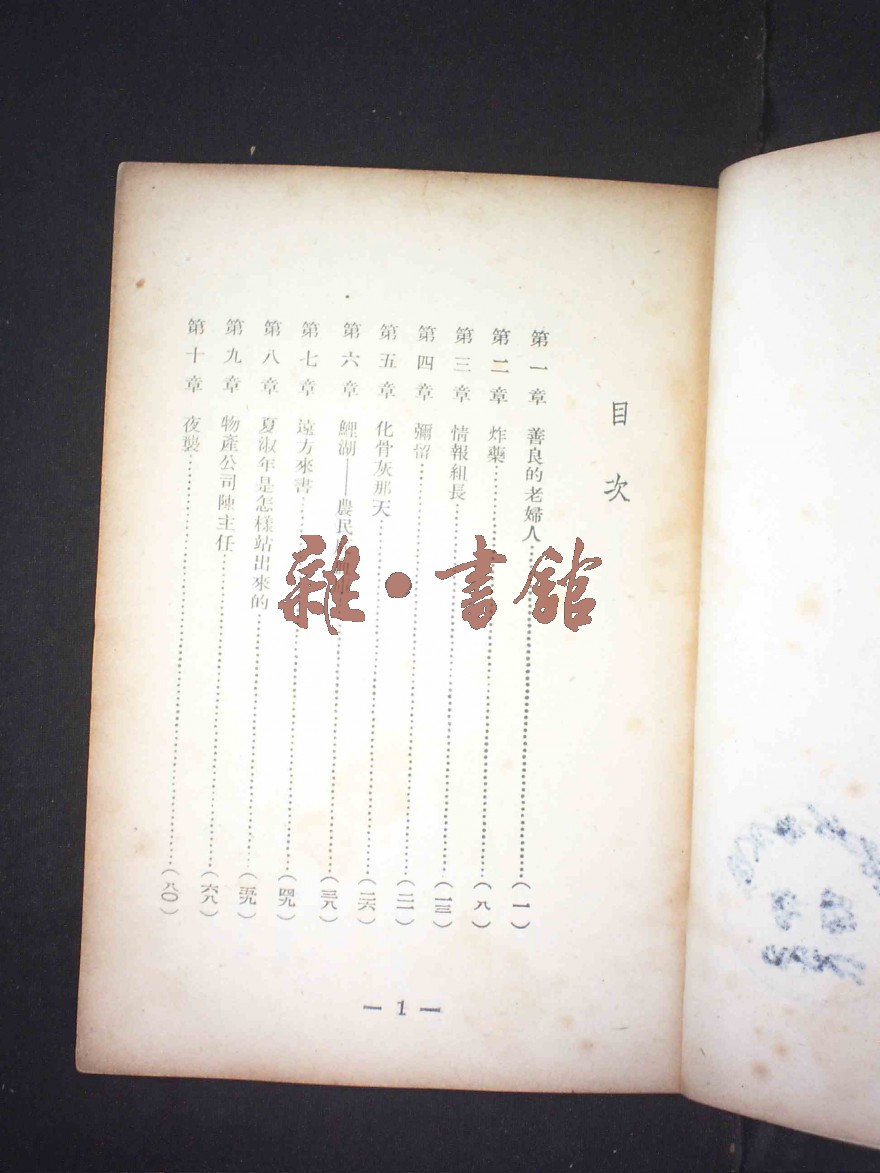 目次
第一章 善良的老婦人……(一)
第二章 炸藥……(八)
第三章 情報組長……(一三)
第四章 彌留……(二一)
第五章 化骨灰那天……(二六)
第六章 鯉湖——農民……(三八)
第七章 遠方來書……(四九)
第八章 夏淑年是怎樣站出來的……(五九)
第九章 物產公司陳主任……(六八)
第十章 夜襲……(八〇)
— 1 —
雜·書館